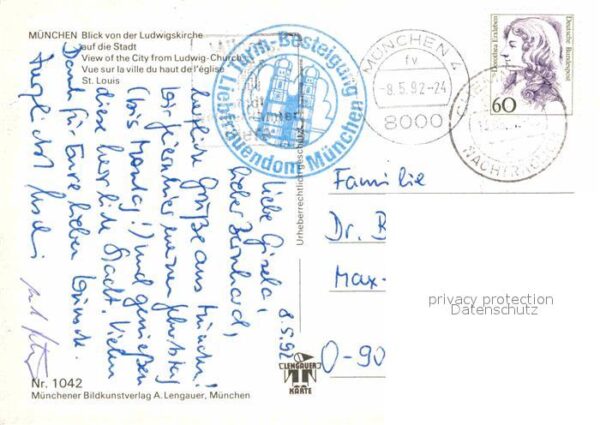 MÜNCHEN Blick von der Ludwigskirche
auf die Stadt
View of the City from Ludwig-Church
Vue sur la ville du haut de l'église
St. Louis
Turm-Besteigung
Liebfrauendom München
MÜNCHEN 4
fv
-8.5.92-24
8000
Dorothea Erxleben
Deutsche Bundespost
60
NACHTR
8.5.92
Liebe Gisela,
lieber Bernhard,
herzliche Grüße aus München!
Wir feiern hier meinen Geburtstag
(bis Montag!) und genießen
diese herrliche Stadt. Vielen
Dank für Eure lieben Wünsche.
Herzlichst
Urheberrechtlich geschützt
Familie
Dr. B
Max-
O-90
privacy protection
Datenschutz
LENGAUER
KARTE
Nr. 1042
Münchener Bildkunstverlag A. Lengauer, München